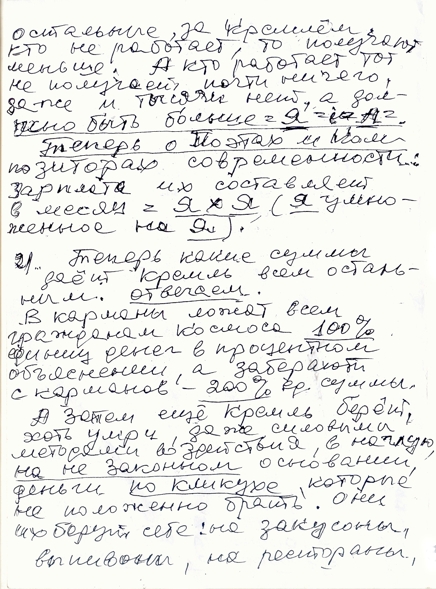 остальные, за кремлём.
кто не работает, то получают
меньше. А кто работает тот
не получает почти ничего,
даже и тысячи нет, а дол-
жно быть больше = Я =
Теперь о Поэтах и Ком-
позиторах современности:
зарплата их составляет
в месяц = Я х Я (Я умно-
женное на Я).
2) Теперь какие суммы
даёт Кремль всем осталь-
ным. отвечаем.
В карманы ложат всем
гражданам космоса 100%
единиц денег в процентном
объяснении, а забирают
с карманов - 200% гр. суммы.
А затем ещё Кремль берёт,
хоть умри, даже силовыми
методами воздействия, в наглую,
на не законном основании,
деньги по кликухе, которые
не положенно брать. Они
их берут себе: на закусоны,
выпивоны, на рестораны,